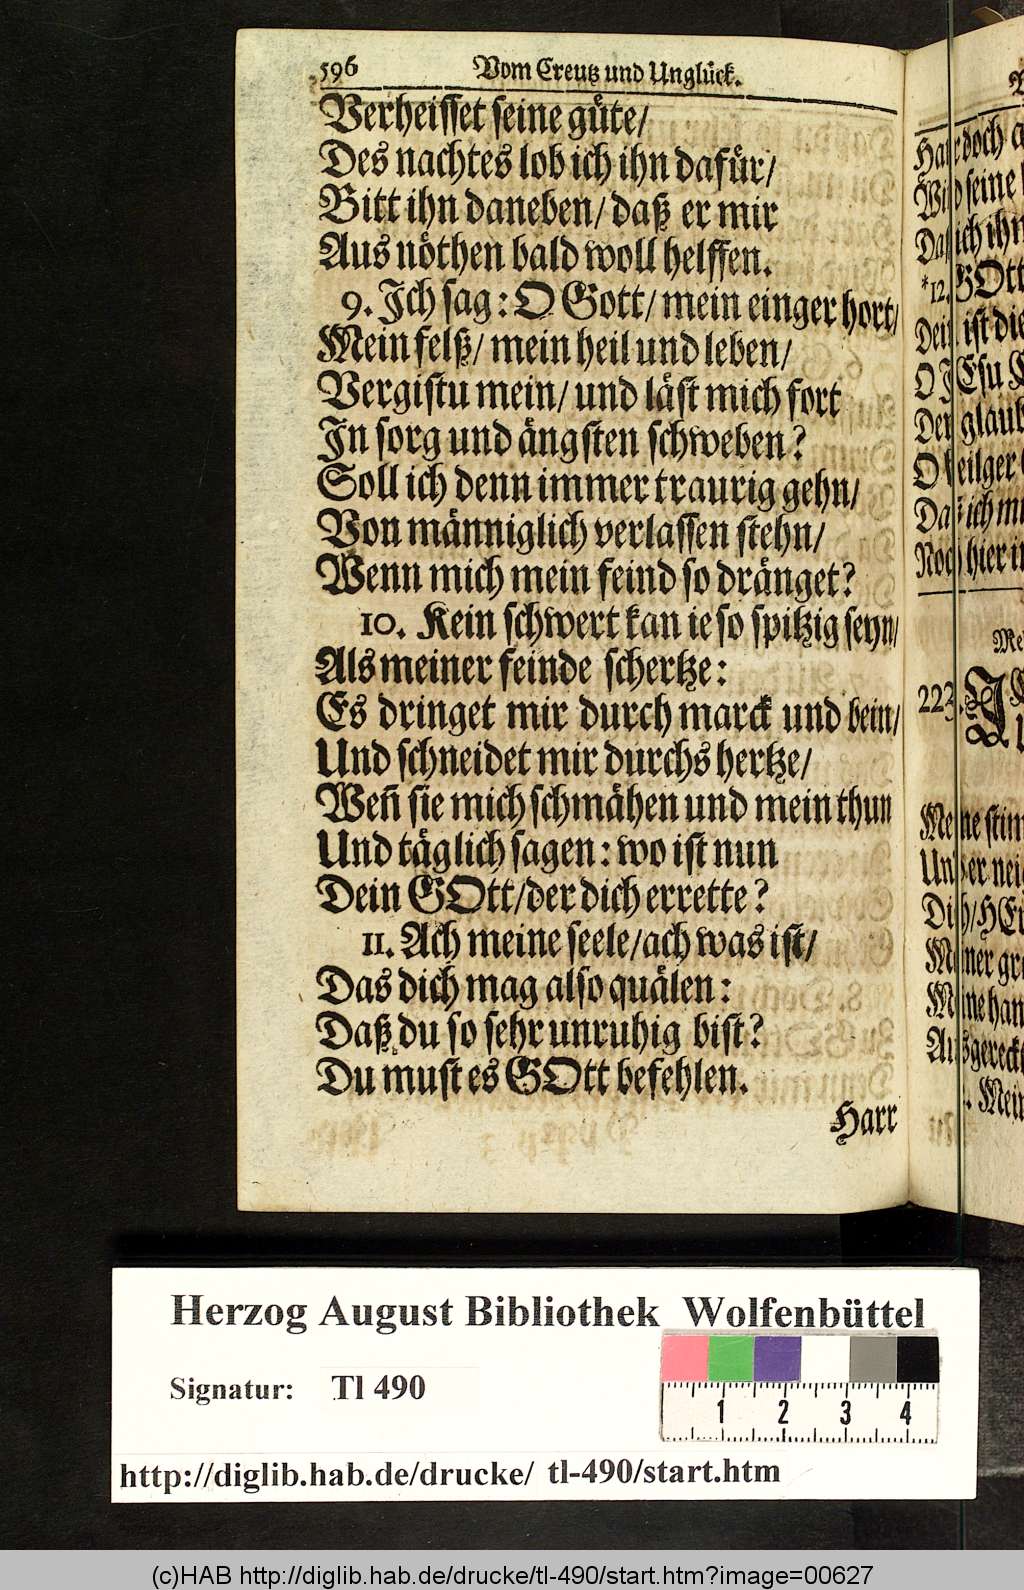 596 Vom Creutz und Unglück.
Verheisset seine güte/
Des nachtes lob ich ihn dafür/
Bitt ihn daneben/ daß er mir
Aus nöthen bald woll helffen.
9. Ich sag: O Gott/ mein einger hort/
Mein felß/ mein heil und leben/
Vergistu mein/ und läst mich fort
In sorg und ängsten schweben?
Soll ich denn immer traurig gehn/
Von männiglich verlassen stehn/
Wenn mich mein feind so dränget?
10. Kein schwert kan ie so spitzig seyn/
Als meiner feinde schertze:
Es dringet mir durch marck und bein/
Und schneidet mir durchs hertze/
Weñ sie mich schmähen und mein thun
Und täglich sagen: wo ist nun
Dein GOtt/ der dich errette?
11. Ach meine seele/ ach was ist/
Das dich mag also quälen:
Daß du so sehr unruhig bist?
Du must es GOtt befehlen.
Harr
doch
seine
ich ihn
*12. GOtt
ist die
glaub
ich
hier
223.
Herzog August Bibliothek Wolfenbüttel
Signatur: Tl 490
1 2 3 4
http://diglib.hab.de/drucke/ tl-490/start.htm
(c)HAB http://diglib.hab.de/drucke/tl-490/start.htm?image=00627